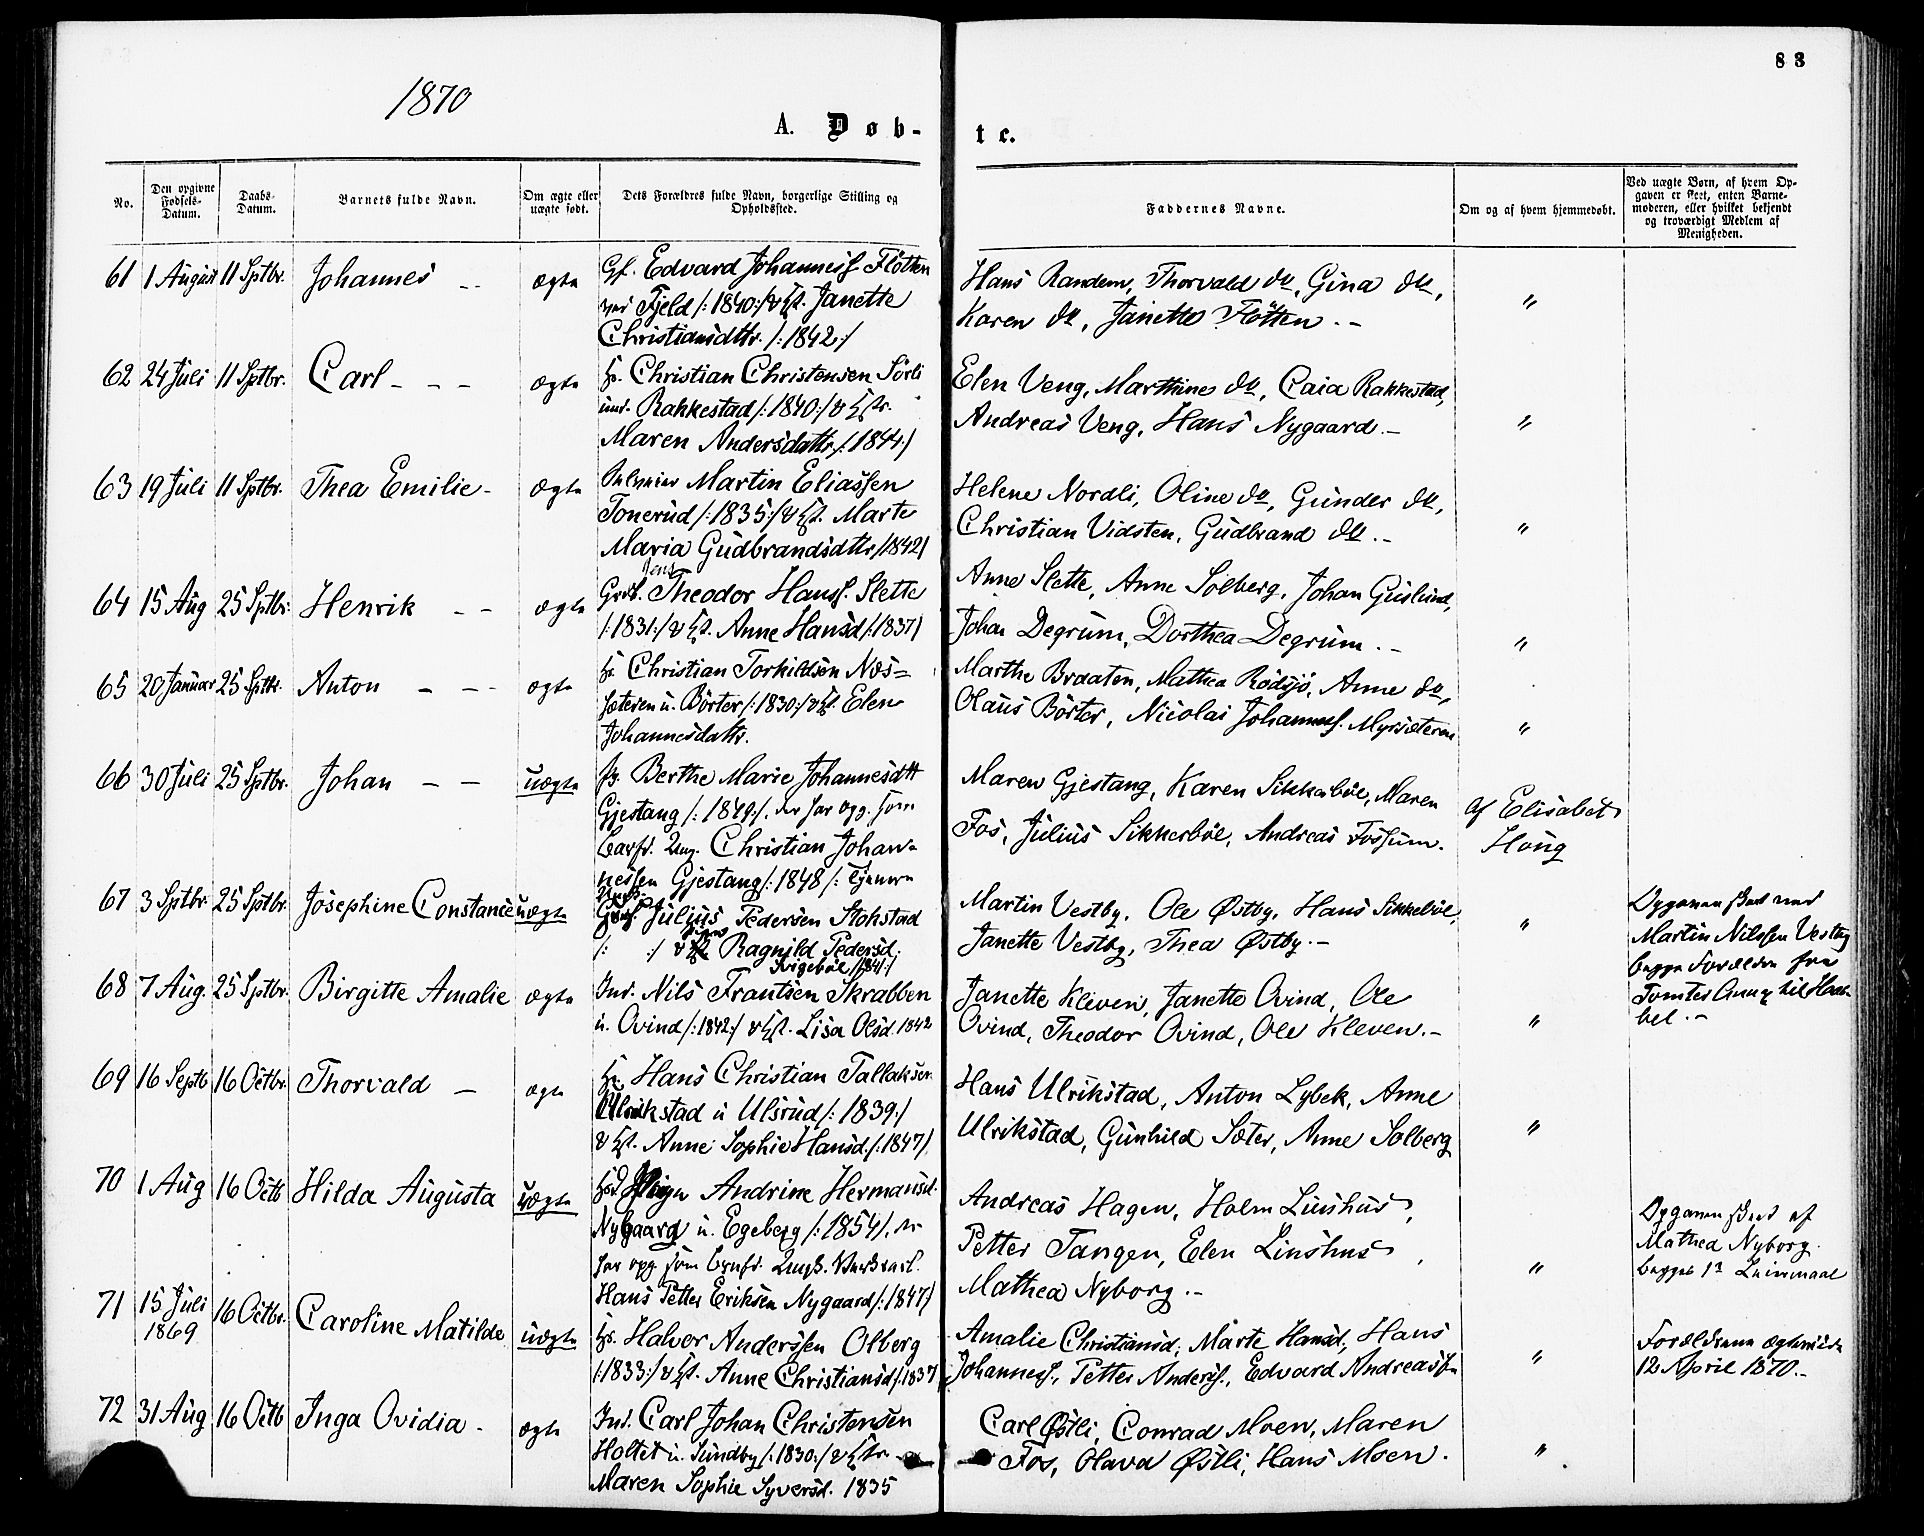 83
1870
A. Døb-
te.
No.
Den opgivne Fødsels-Datum.
Daabs-Datum.
Barnets fulde Navn.
Om ægte eller uægte født.
Dets Forældres fulde Navn, borgerlige Stilling og Opholdssted.
Faddernes Navne.
Om og af hvem hjemmedøbt.
Ved uægte Børn, af hvem Opgaven er skeet, enten Barnemoderen, eller hvilket bekjendt og troværdigt Medlem af Menigheden.
61 1 August 11 Sptbr. Johannes ægte
Gf. Edvard Johanness. Flötten
Fjeld /:1840:/ & Kst. Janette
Christiansdttr. /:1842:/
Hans Randem, Thorvald do, Gina do,
Karen do, Janette Flötten. - "
62 24 Juli 11 Sptbr. Carl - - - ægte
Hs. Christian Christensen Sörli
und. Rakkestad /:1840:/ & Kstr.
Maren Andersdattr /:1844:/
Elen Veng, Marthine do, Caia Rakkestad,
Andreas Veng, Hans Nygaard. - "
63 19 Juli 11 Sptbr. Thea Emilie - ægte
Martin Eliassen
Tonerud /:1835:/ & Kst. Marte
Maria Gudbrandsdttr /1842/
Helene Nordli, Oline do, Gunder do,
Christian Vidsten, Gudbrand do. - "
64 15 Aug 25 Sptbr. Henrik - - ægte
Grdb. Jens Theodor Hanss. Slette
/:1831:/ & Kst. Anne Hansd /:1837/
Anne Slette, Anne Solberg, Johan Guslund,
Johan Degrum, Dorthea Degrum. - "
65 20 Januar 25 Sptbr. Anton - - - ægte
Hs. Christian Torkildsen Næs=
sæteren u. Börter /:1830:/ & Kst. Elen
Johannesdattr.
Marthe Braaten, Mathea Rödsjö, Anne do,
Olaus Börter, Nicolai Johanness. Myrsæteren "
66 30 Juli 25 Sptbr. Johan - - uægte
Pg. Berthe Marie Johannesdtt
Gjestang /:1849:/, der har opg. som
Barfr. Ung. Christian Johan-
nessen Gjestang /:1848/:
Maren Gjestang, Karen Sikkeböe, Maren
Fos, Julius Sikkeböe, Andreas Fossum.
af Elisabet
Houg
67 3 Sptbr. 25 Sptbr. Josephine Constance uægte
Julius Pedersen Stokstad
/: :/ & Ragnild Pedersd.
/1841:/
Martin Vestby, Ole Østby, Hans Sikkeböe,
Janette Vestby, Thea Østby. - "
Opgaven skeet ved
Martin Nilssen Vestby
begge Forældre fra
Tomter Annex til Hob-
bel. -
68 7 Aug. 25 Sptbr. Birgitte Amalie ægte
Ind. Nils Frantsen Skrabben
u. Ovind /:1842:/ & Kst. Lisa Olsd. 1842
Janette Kleven, Janette Ovind, Ole
Ovind, Theodor Ovind, Ole Kleven. - "
69 16 Septb 16 Octbr. Thorvald - ægte
Hs. Hans Christian Tallaksen
Ulrikstad u Ulsrud /:1839:/
& Kst. Anne Sophie Hansd. /:1847/
Hans Ulrikstad, Anton Lybek, Anne
Ulrikstad, Gunhild Sæter, Anne Solberg "
70 1 Aug 16 Octb Hilda Augusta uægte
Andrine Hermansd.
Nygaard u. Egeberg /:1854/, der
har opg som Brnfr. Ungk.
Hans Petter Eriksen Nygaard /:1847/
Andreas Hagen, Holm Linshus,
Petter Tangen, Elen Linshus,
Mathea Nyborg. - "
Opgaven skeet af
Mathea Nyborg.
begges 1ste Leiermaal
71 15 Juli 1869 16 Octbr. Caroline Matilde uægte
Hs. Halvor Anderssen Olberg
/:1833:/ & Kst. Anne Christiansd /:1837
Amalie Christiansd, Marte Hansd, Hans
Johanness., Petter Anderss., Edvard Andreassen "
Forældrene ægteviede
12 April 1870. -
72 31 Aug 16 Octb Inga Ovidia - ægte
Ind. Carl Johan Christensen
Holtet u. Sundby /:1830:/ & Kstr.
Maren Sophie Syversd. 1835
Carl Østli, Conrad Moen, Maren
Fos, Olava Østli, Hans Moen. "